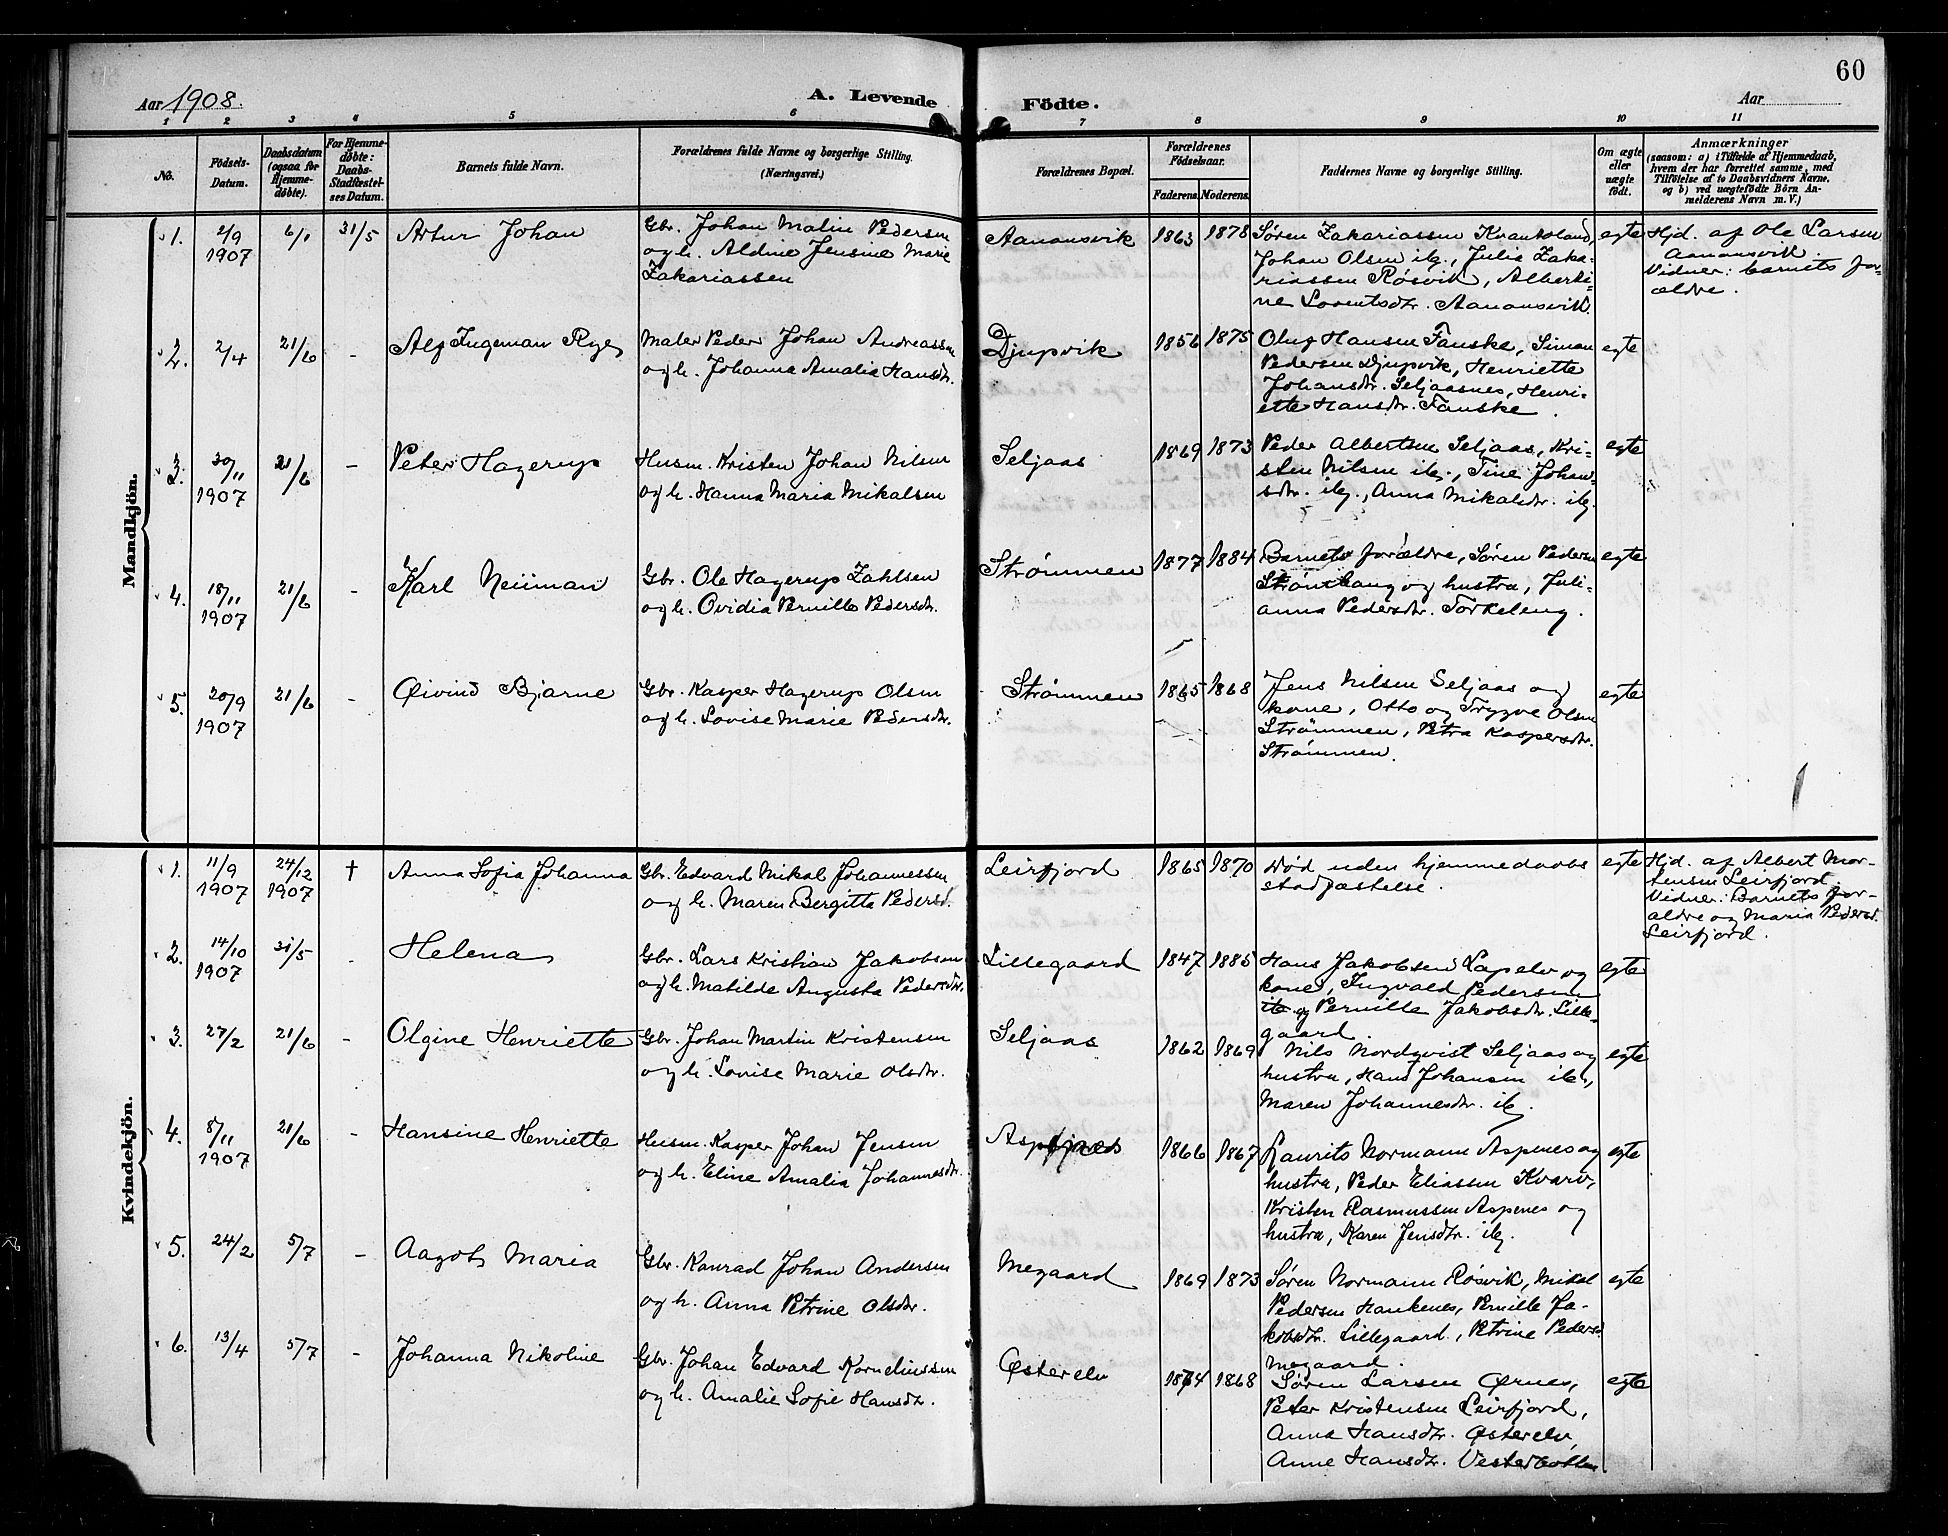 60
Aar 1908.
A. Levende Födte.
Aar
1 2 3 4 5 6 7 8 9 10 11
No.
Födsels-Datum.
Daabsdatum (ogsaa for Hjemme-döbte).
For Hjemme-döbte: Daabs-Stadfæstel-ses Datum.
Barnets fulde Navn.
Forældrenes fulde Navne og borgerlige Stilling. (Næringsvei.)
Forældrenes Bopæl.
Forældrenes Födselsaar.
Faderens. Moderens.
Faddernes Navne og borgerlige Stilling.
Om ægte eller uægte födt.
Anmærkninger
(saasom: a) i Tilfælde af Hjemmedaab, hvem der har forrettet samme, med Tilföielse af to Daabsvidners Navne, og b) ved uægtefödte Börn Anmelderens Navn m. V.)
Mandkjön.
1. 2/9 1907 6/1 31/5 Artur Johan
Gbr. Johan Malin Pedersen
og h. Aldine Jensine Marie
Zakariassen
Aanonsvik 1863 1878
Søren Zakariassen Kvanteland,
Johan Olsen ibg., Julia Zaka-
riassen Røsvik, Alberti-
ne Lorentsdtr. Aanonsvik.
egte
Hjd. af Ole Larsen
Aanonsvik.
Vidner: barnets for-
ældre.
2. 2/4 21/6 - Alf Ingeman Rye
Maler Peder Johan Andreassen
og h. Johanna Amalia Hansdtr.
Djupvik 1856 1875
Oluf Hansen Fauske, Simon
Pedersen Djupvik, Henriette
Johansdtr. Seljaasnes, Henri-
ette Hansdtr. Fauske.
egte
3. 30/11 1907 21/6 - Peter Hagerup
Husm. Kristen Johan Nilsen
og h. Hanna Maria Mikalsen
Seljaas 1869 1873
Peder Albertsen Seljaas, Kri-
sten Nilsen ibg., Tine Johan-
sdtr. ibg., Anna Mikalsdtr. ibg.
egte
4. 18/11 1907 21/6 - Karl Neiiman
Gbr. Ole Hagerup Zahlsen
og h. Ovidia Pernille Pedersdtr.
Strømmen 1877 1884
Barnets forældre, Søren Pedersen
Strømhaug og hustru, Juli-
anna Pedersdtr. Torkeleng.
egte
5. 20/9 1907 21/6 - Øivind Bjarne
Gbr. Kasper Hagerup Olsen
og h. Lovise Marie Pedersdtr.
Strømmen 1865 1868
Jens Nilsen Seljaas og
kone, Otto og Trygve Olsen
Strømmen, Petra Kaspersdtr.
Strømmen.
egte
Kvindekjön.
1. 11/9 1907 24/12 1907 † Anna Sofia Johanna
Gbr. Edvard Mikal Johannessen
og h. Maren Bergitta Pedersd.
Leirfjord 1865 1870
Død uden hjemmedaabs
stadfæstelse.
egte
Hjd. af Albert Mor-
tensen Leirfjord.
Vidner: Barnets for-
ældre og Maria Pedersd.
Leirfjord.
2. 14/10 1907 31/5 - Helena
Gbr. Lars Kristian Jakobsen
og h. Matilde Augusta Pedersdtr.
Lillegaard 1847 1885
Hans Jakobsen Lapelv og
kone, Ingvald Pedersen
og Pernille Jakobsdtr. Lille-
gaard
egte
3. 27/2 21/6 - Olgine Henriette
Gbr. Johan Martin Kristensen
og h. Lovise Marie Olsdtr.
Seljaas 1862 1869
Nils Nordqvist Seljaas og
hustru, Hans Johansen ibg.,
Maren Johannesdtr. ibg.
egte
4. 8/11 1907 21/6 - Hansine Henriette
Husm. Kasper Johan Jensen
og h. Eline Amalia Johannesdtr.
1866 1867
Laurits Normann Aspenes og
hustru, Peder Eliassen Kvarv,
Kristen Rasmussen Aspenes og
hustru, Karen Jensdtr. ibg.
egte
5. 24/2 5/7 - Aagot Maria
Gbr. Konrad Johan Andersen
og h. Anna Petrine Olsdtr.
Megaard 1869 1873
Søren Normann Røsvik, Mikal
Pedersen Hankenes, Pernille Ja-
kobsdtr. Lillegaard, Petrine Pedersd.
Megaard.
egte
6. 13/4 5/7 - Johanna Nikoline
Gbr. Johan Edvard Korneliussen
og h. Amalie Sofie Hansdtr.
Østerelv 1874 1868
Søren Larsen Ørnes,
Peter Kristensen Leirfjord,
Anna Hansdtr. Østerelv,
Anne Hansdtr. Vesterbotten.
egte